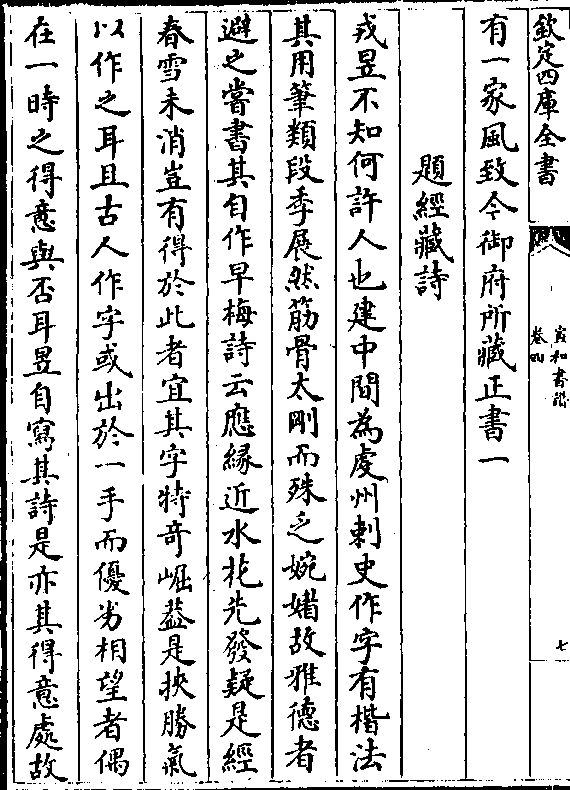 欽定四庫全書
宣和書譜
卷四
七
有一家風致今御府所藏正書一
題經藏詩
戎昱不知何許人也建中間為虔州刺史作字有楷法
其用筆類段季展然筋骨太剛而殊乏婉媚故雅德者
避之嘗書其自作早梅詩云應緣近水花先發疑是經
春雪未消豈有得於此者宜其字特奇崛葢是挾勝氣
以作之耳且古人作字或出於一手而優劣相望者偶
在一時之得意與否耳昱自寫其詩是亦其得意處故